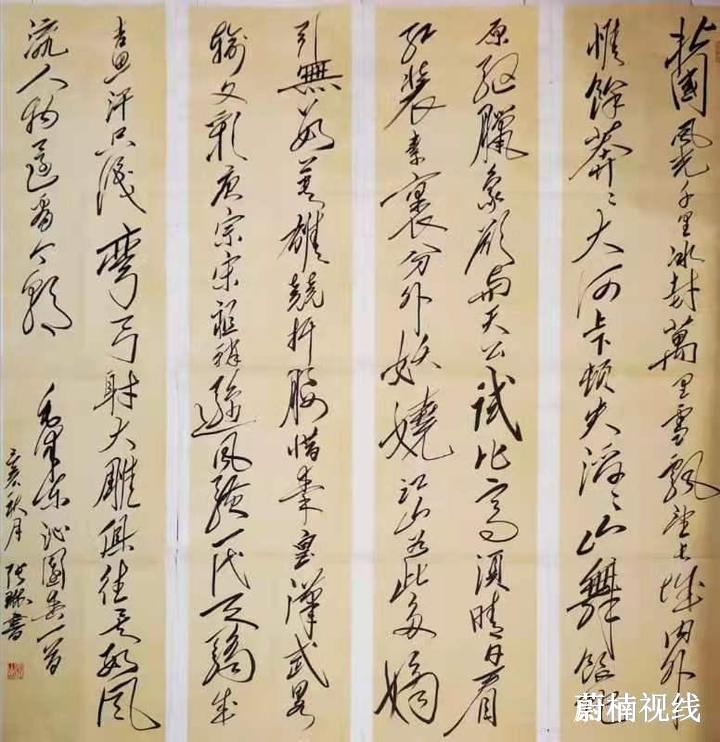 北國風光千里冰封萬里雪飄望長城內外
惟餘莽〻大河上下頓失滔〻山舞銀蛇
原馳臘象欲與天公試比高須晴日看
紅裝素裹分外妖嬈江山如此多嬌
引無數英雄競折腰惜秦皇漢武略
輸文彩唐宗宋祖稍遜風騷一代天驕成
吉思汗只識彎弓射大雕俱往矣數風
流人物還看今朝 毛澤東沁園春一首
亥秋月 張琳書
蔚楠视线